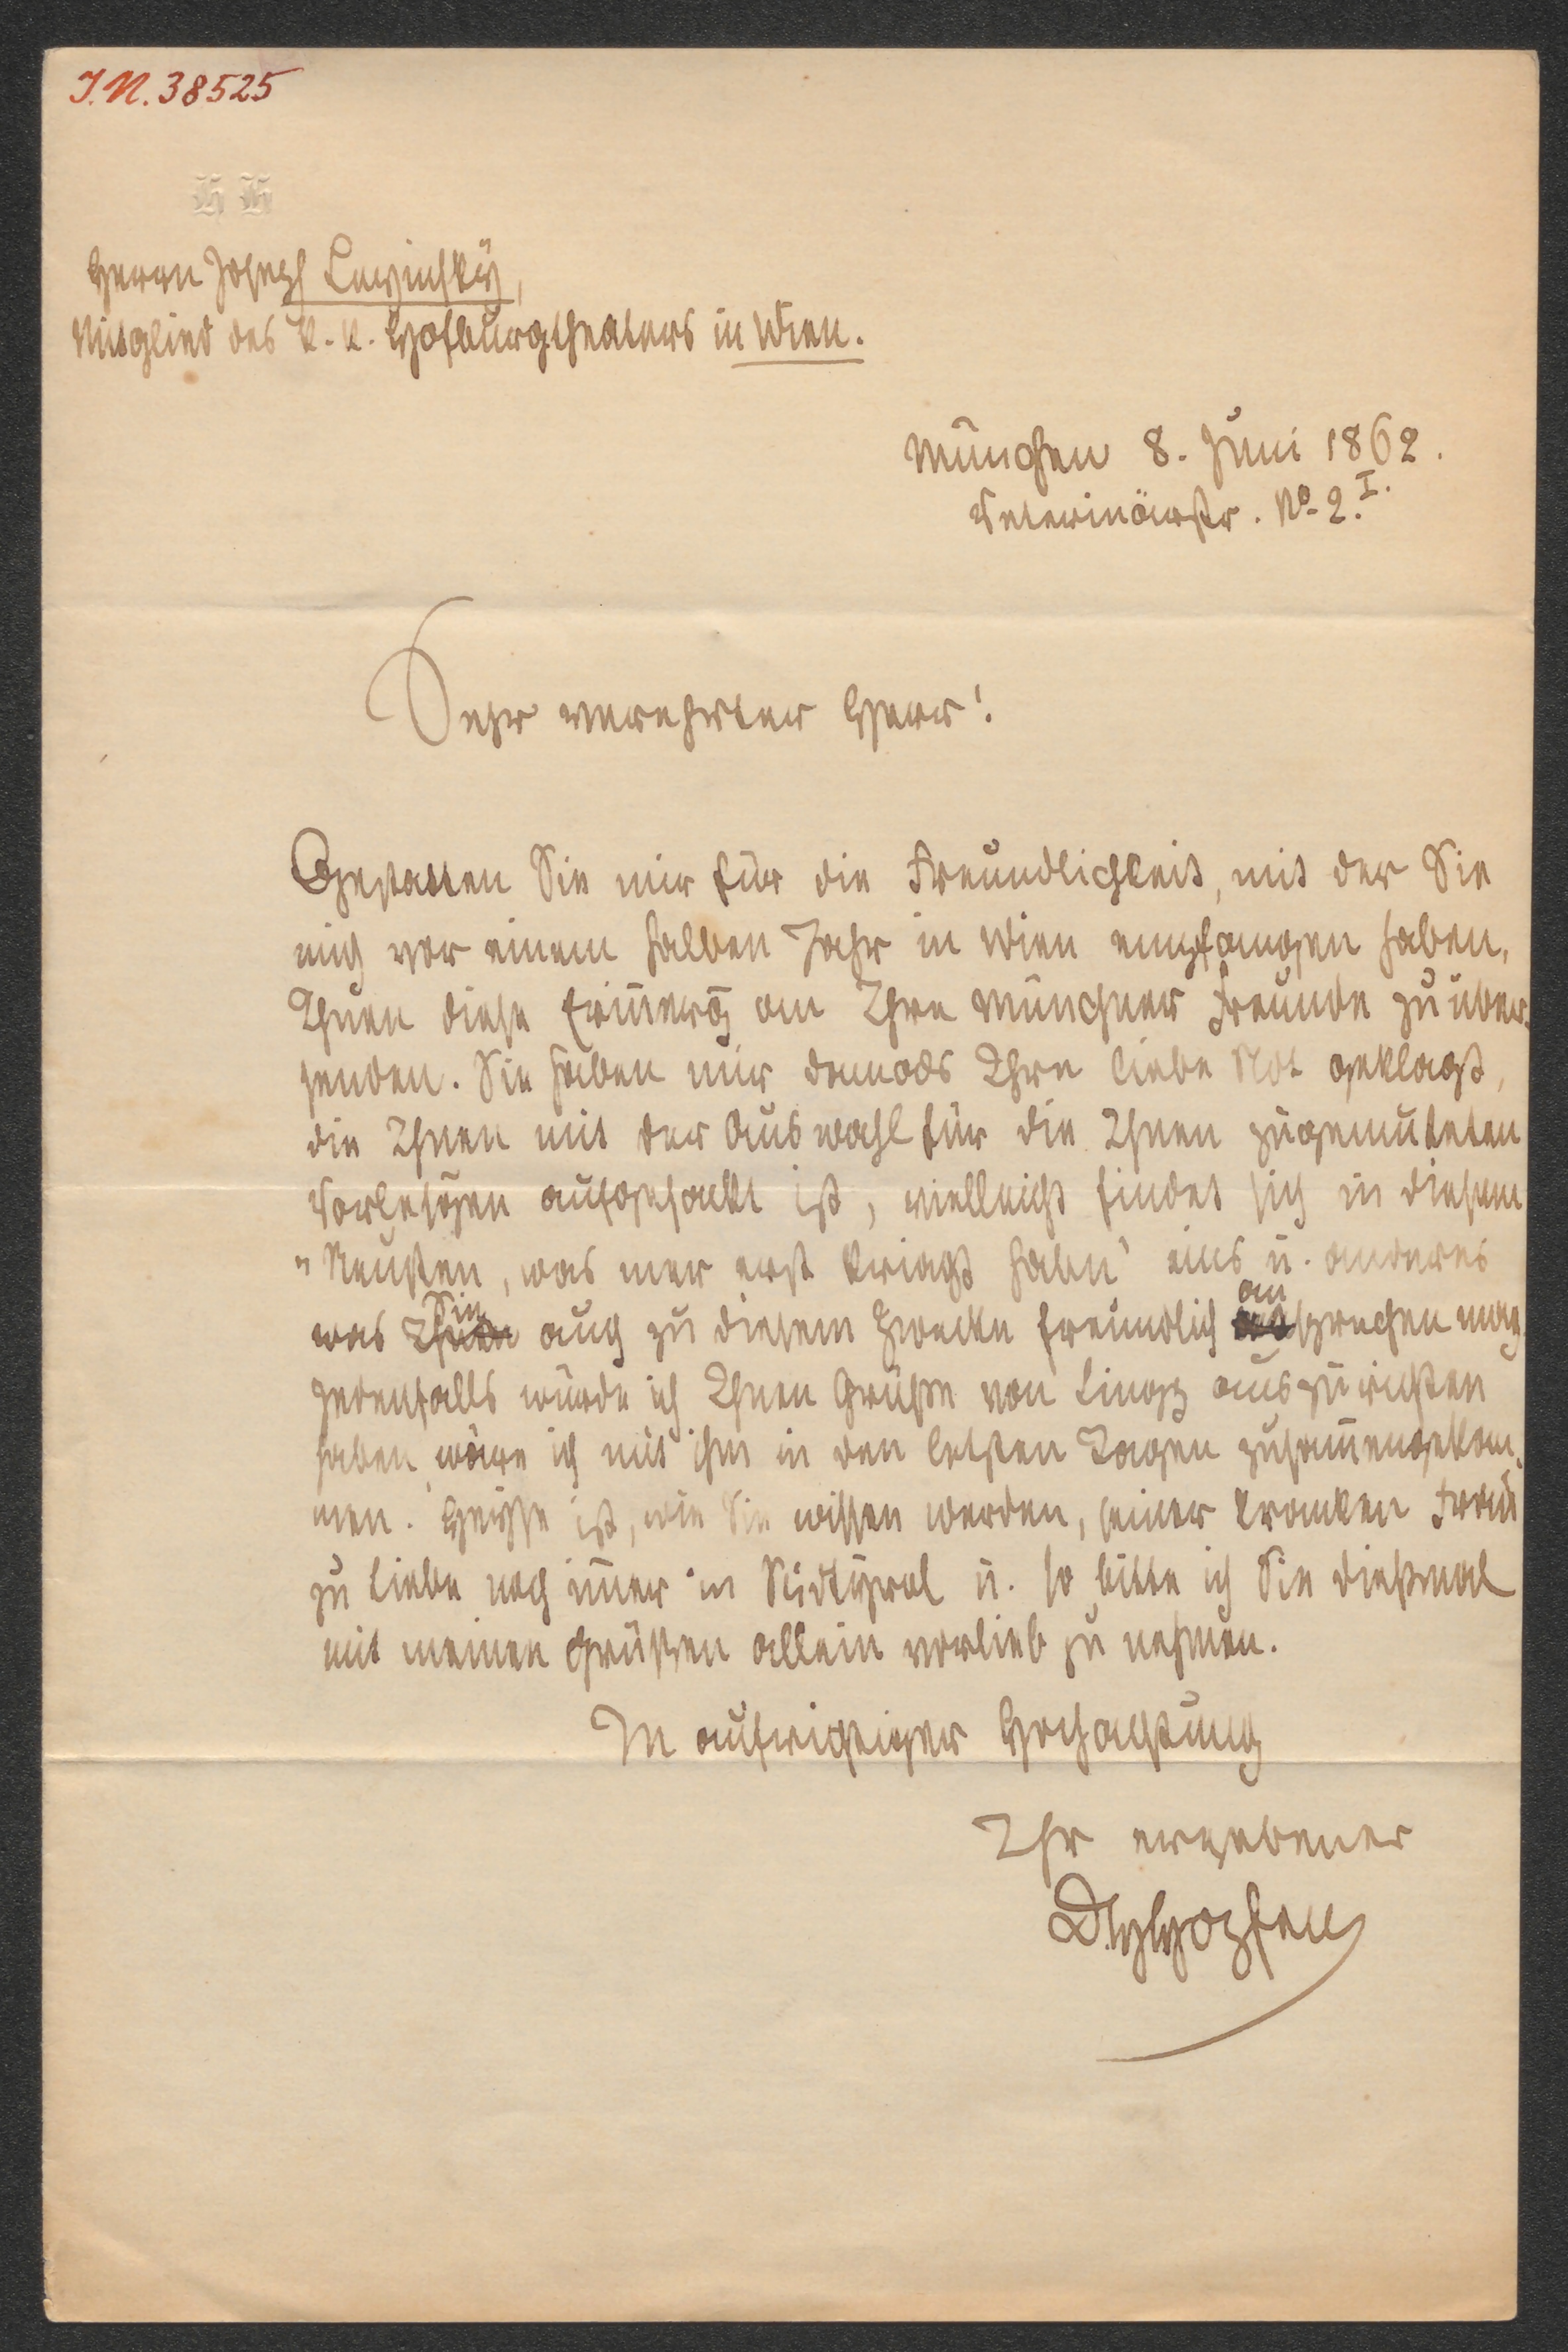 I.N. 38525
HH
Herrn Joseph Lewinsky,
Mitglied des k. k. Hofburgtheaters in Wien.
München 8. Juni 1862.
Veterinärstr. No 2. I.
Sehr verehrter Herr!
Gestatten Sie mir für die Freundlichkeit, mit der Sie
mich vor einem halben Jahr in Wien empfangen haben,
Ihnen diese Erinnerg an Ihre Münchner Freunde zu über-
senden. Sie haben mir damals Ihre liebe Not geklagt,
die Ihnen mit der Auswahl für die Ihnen zugemuteten
Vorlesgen aufgehalst ist, vielleicht findet sich in diesem
"Neusten, was mer erst kriagt habn" eins u. anderes
was Sie auch zu diesem Zwecke freundlich ansprechen mag.
Jedenfalls würde ich Ihnen Grüße von Lingg auszurichten
haben, wäre ich mit ihm in den letzten Tagen zusam̄engekom-
men. Heyse ist, wie Sie wissen werden, seiner kranken Frau
zu Liebe noch im̄er in Südtyrol u. so bitte ich Sie dießmal
mit meinen Grüßen allein vorlieb zu nehmen.
In aufrichtiger Hochachtung
Ihr ergebener
Hopfen